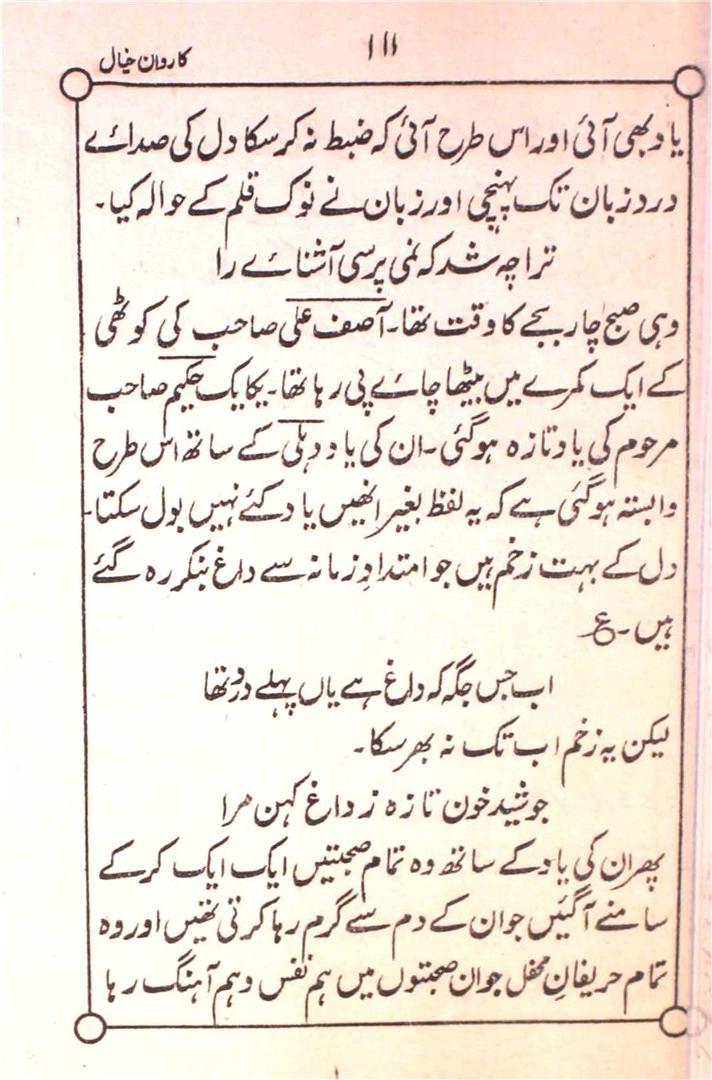 ۱۱۱
کاروان خیال
یاد بھی آئی اور اس طرح آئی کہ ضبط نہ کر سکا دل کی صدائے
درد زبان تک پہنچی اور زبان نے نوک قلم کے حوالہ کیا۔
ترا چہ شد کہ نمی پرسی آشنائے را
وہی صبح چار بجے کا وقت تھا۔ آصف علی صاحب کی کوٹھی
کے ایک کمرے میں بیٹھا چائے پی رہا تھا۔ یکایک حکیم صاحب
مرحوم کی یاد تازہ ہوگئی۔ ان کی یاد دہلی کے ساتھ اس طرح
وابستہ ہوگئی ہے کہ یہ لفظ بغیر انھیں یاد کئے نہیں بول سکتا۔
دل کے بہت زخم ہیں جو امتدادِ زمانہ سے داغ بنکر رہ گئے
ہیں۔ ع
اب جس جگہ کہ داغ ہے یاں پہلے درد تھا
لیکن یہ زخم اب تک نہ بھر سکا۔
جوشید خون تازہ ز داغ کہن مرا
پھر ان کی یاد کے ساتھ وہ تمام صحبتیں ایک ایک کرکے
سامنے آگئیں جو ان کے دم سے گرم رہا کرتی تھیں اور وہ
تمام حریفانِ محفل جو ان صحبتوں میں ہم نفس و ہم آہنگ رہا